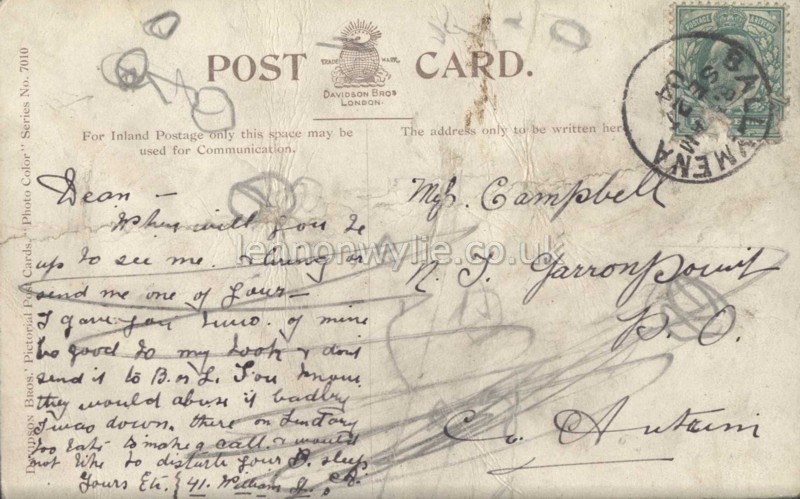 POST CARD.
TRADE MARK.
DAVIDSON BROS
LONDON.
For Inland Postage only this space may be
used for Communication.
The address only to be written here.
BALLYMENA
SE 24
04
Davidson Bros.' Pictorial Post Cards. "Photo Color" Series No. 7010
POSTAGE & REVENUE
Dear —
When will you be
up to see me. & bring or
send me one of yours —
I gave you two of mine
be good to my book & dont
send it to B. or L. You know
they would abuse it badly
I was down there on Sunday
too late to make a call & would
not like to disturb your B. sleep
Yours Etc. 41. William St.
Campbell
N. T. Garronpoint
P. O.
Co. Antrim
lennonwylie.co.uk